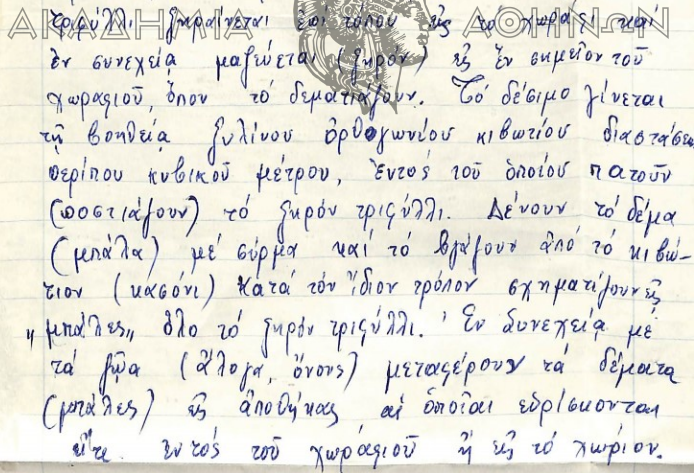 ΑΚΑΔΗΜΙΑ ΑΘΗΝΩΝ
τριφύλλι ξηραίνεται ἐπί τόπου εἰς τό χωράφι καί
ἐν συνεχείᾳ μαζεύεται (ξηρόν) εἰς ἕν σημεῖον τοῦ
χωραφιοῦ, ὅπου τό δεματιάζουν. Τό δέσιμο γίνεται
τῇ βοηθείᾳ ξυλίνου ὀρθογωνίου κιβωτίου διαστάσεων
περίπου κυβικοῦ μέτρου, ἐντός τοῦ ὁποίου πατοῦν
(ποστιάζουν) τό ξηρόν τριφύλλι. Δένουν τό δέμα
(μπάλα) μέ σύρμα καί τό βγάζουν ἀπό τό κιβώ-
τιον (κασόνι) κατά τόν ἴδιον τρόπον σχηματίζουν εἰς
„μπάλες„ ὅλο τό ξηρόν τριφύλλι. Ἐν συνεχείᾳ μέ
τά ζῶα (ἄλογα, ὄνους) μεταφέρουν τά δέματα
(μπάλες) εἰς ἀποθήκας αἱ ὁποῖαι εὑρίσκονται
εἴτε ἐντός τοῦ χωραφιοῦ ἤ εἰς τό χωρίον.